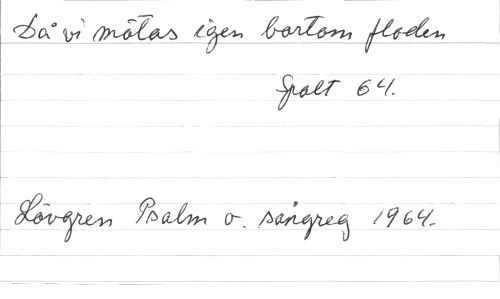 Då vi mötas igen bortom floden
Spalt 64.
Lövgren Psalm o. sångreg 1964.